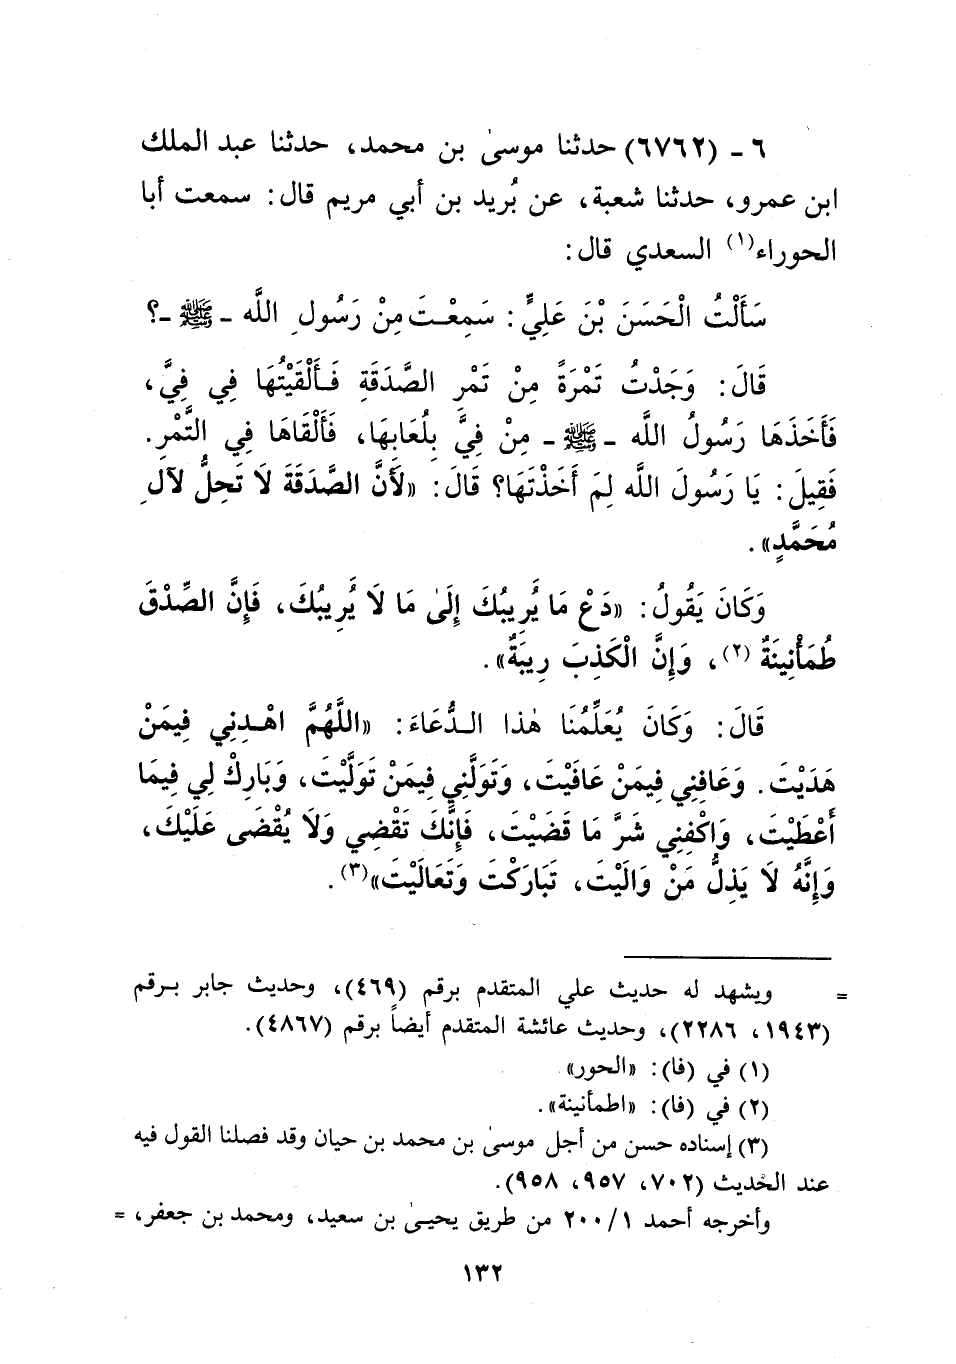 ٦ ـ (٦٧٦٢) حدثنا موسىٰ بن محمد، حدثنا عبد الملك
ابن عمرو، حدثنا شعبة، عن بُريد بن أبي مريم قال: سمعت أبا
الحوراء(١) السعدي قال:
سَأَلْتُ الْحَسَنَ بْنَ عَلِيٍّ: سَمِعْتَ مِنْ رَسُولِ اللَّه ـ ﷺ ـ؟
قَالَ: وَجَدْتُ تَمْرَةً مِنْ تَمْرِ الصَّدَقَةِ فَأَلْقَيْتُهَا فِي فِيَّ،
فَأَخَذَهَا رَسُولُ اللَّه ـ ﷺ ـ مِنْ فِيَّ بِلُعَابِهَا، فَأَلْقَاهَا فِي التَّمْرِ.
فَقِيلَ: يَا رَسُولَ اللَّه لِمَ أَخَذْتَهَا؟ قَالَ: «لَأَنَّ الصَّدَقَةَ لَا تَحِلُّ لآلِ
مُحَمَّدٍ».
وَكَانَ يَقُولُ: «دَعْ مَا يُرِيبُكَ إِلَىٰ مَا لَا يُرِيبُكَ، فَإِنَّ الصِّدْقَ
طُمَأْنِينَةٌ (٢)، وَإِنَّ الْكَذِبَ رِيبَةٌ».
قَالَ: وَكَانَ يُعَلِّمُنَا هٰذا الدُّعَاءَ: «اللَّهُمَّ اهْدِنِي فِيمَنْ
هَدَيْتَ. وَعَافِنِي فِيمَنْ عَافَيْتَ، وَتَوَلَّنِي فِيمَنْ تَوَلَّيْتَ، وَبَارِكْ لِي فِيمَا
أَعْطَيْتَ، وَاكْفِنِي شَرَّ مَا قَضَيْتَ، فَإِنَّكَ تَقْضِي وَلَا يُقْضَى عَلَيْكَ،
وَإِنَّهُ لَا يَذِلُّ مَنْ وَالَيْتَ، تَبَارَكْتَ وَتَعَالَيْتَ»(٣).
= ويشهد له حديث علي المتقدم برقم (٤٦٩)، وحديث جابر برقم
(١٩٤٣، ٢٢٨٦)، وحديث عائشة المتقدم أيضاً برقم (٤٨٦٧).
(١) في (فا): «الحور»
(٢) في (فا): «اطمأنينة».
(٣) إسناده حسن من أجل موسىٰ بن محمد بن حيان وقد فصلنا القول فيه
عند الحديث (٧٠٢، ٩٥٧، ٩٥٨).
وأخرجه أحمد ١/ ٢٠٠ من طريق يحيىٰ بن سعيد، ومحمد بن جعفر، =
١٣٢